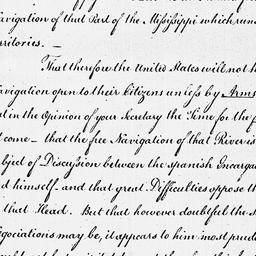 avigation of that Part of the Missisippi which runs
rritories. —
That therefore the United States will not h
avigation open to their Citizens unless by Arms
at in the Opinion of your Secretary the Time for the
t come — that the free Navigation of that River is
bject of Discussion between the Spanish Encargad
d himself — and that great Difficulties oppose th
that Head. But that however doubtful the
egociations may be, it appears to him most prude